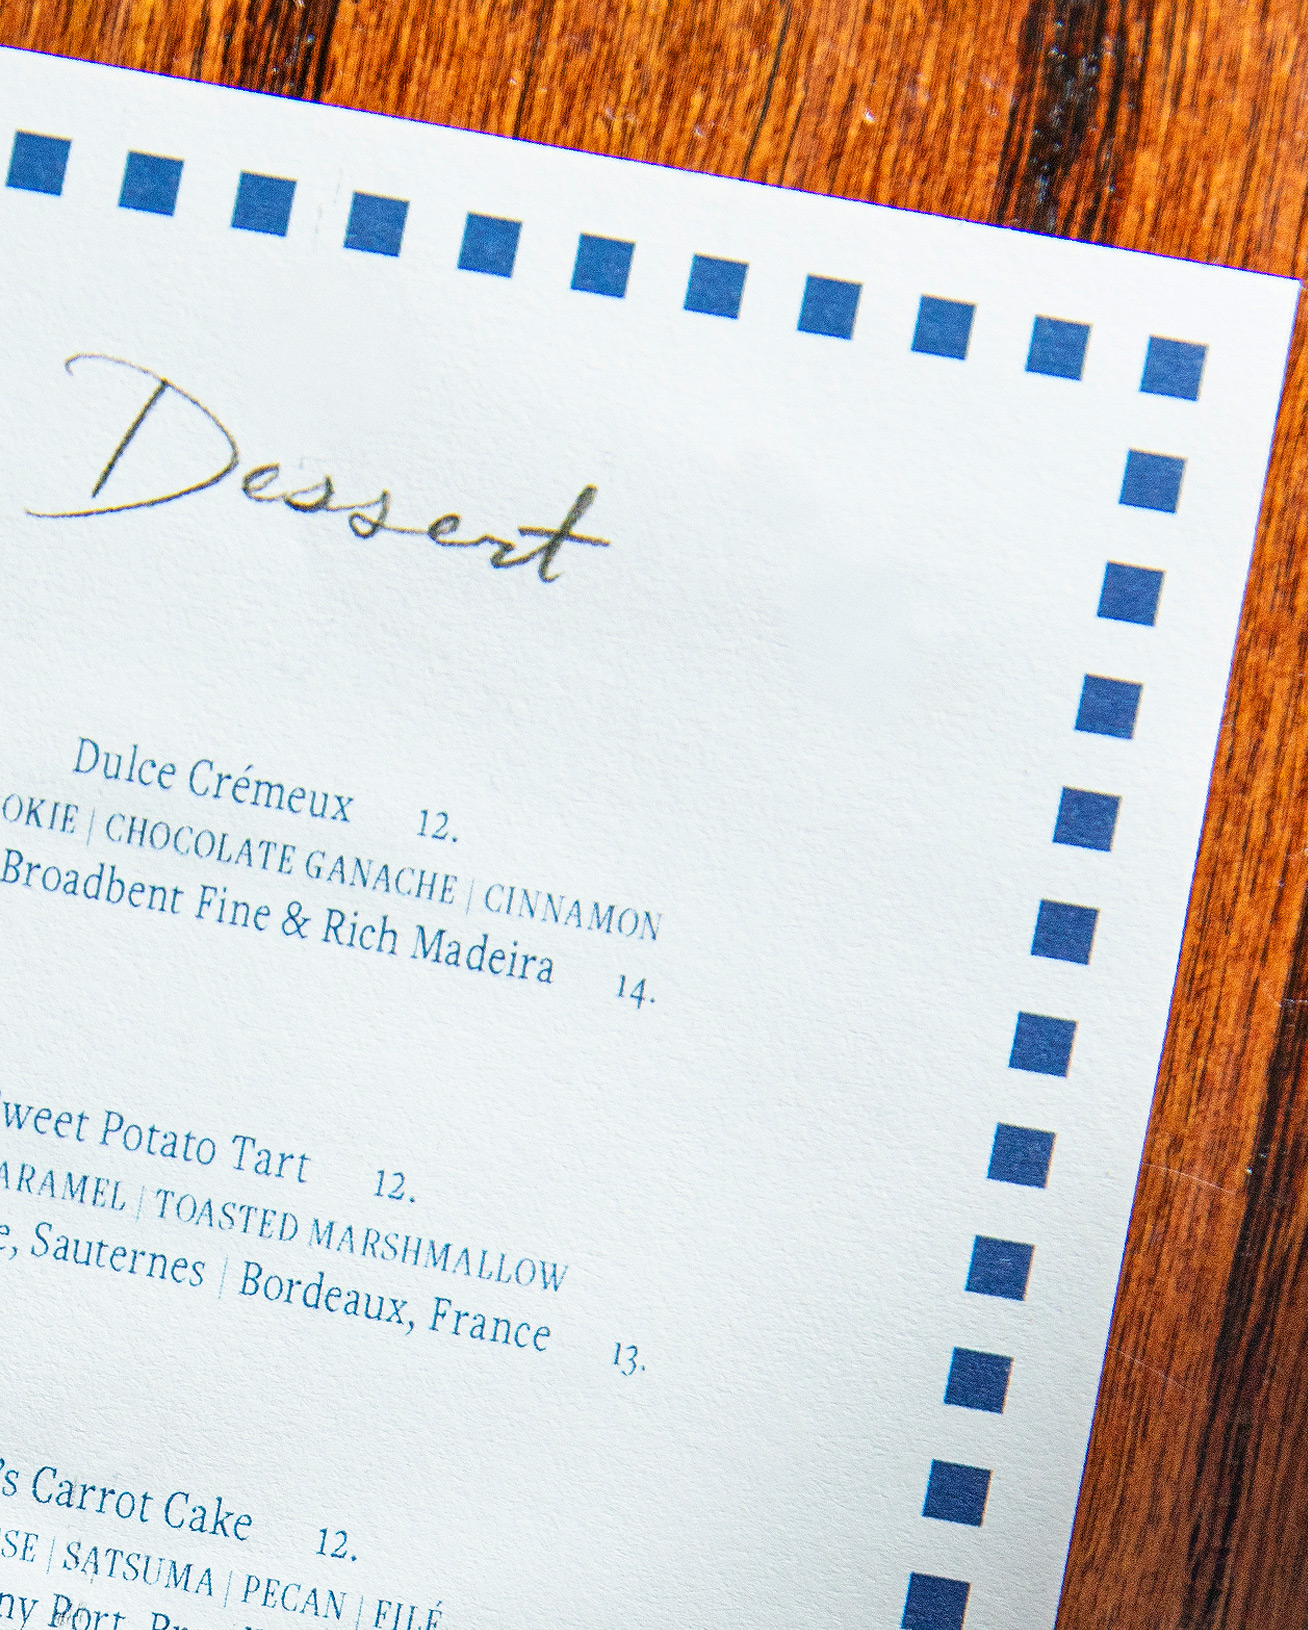 Dessert
Dulce Crémeux 12.
OKIE | CHOCOLATE GANACHE | CINNAMON
Broadbent Fine & Rich Madeira 14.
weet Potato Tart 12.
ARAMEL | TOASTED MARSHMALLOW
e, Sauternes | Bordeaux, France 13.
's Carrot Cake 12.
SE | SATSUMA | PECAN | FILÉ
ny Port,